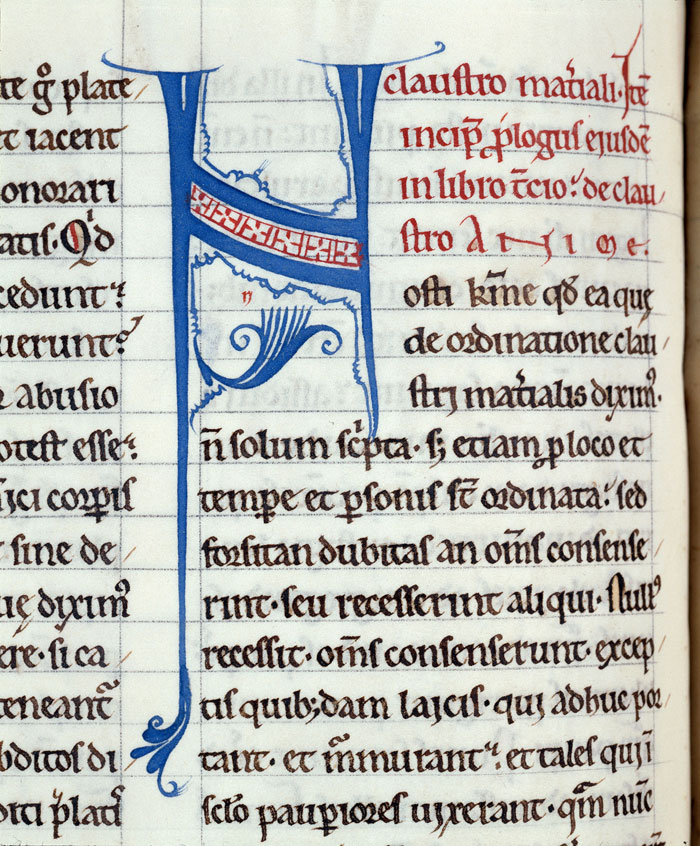 te g̊ plate
t iacent
onorari
atis. Qd̾
cedunt:
uerunt:
abusio
otest esse:
sici corpis
sine de
uę dixim᷒
ere. si ca
teneant᷑
bditos di
oiti p̄lat᷑
claustro mat̾iali. Itē
incip̄ p̄logus eiusdē
in libro t̄cio: de clau
stro A n i m e.
N osti k̄me qd̄ ea quę
de ordinatione clau
strj mat̾ialis dixim᷒.
n̄ solum sc̾pta. s; etiam ꝑ loco et
temꝑe et ꝑsonis st̄ ordinata: sed
forsitan dubitas an om̄s consense
rint. seu recesserint aliqui. Null᷒
recessit. om̄s consenserunt. excep
tis quib;dam laicis. quj adhuc por
tant. et m̄murant: et tales quj ī
sc̄lo pauꝑiores uixerant. qm̄ nūc